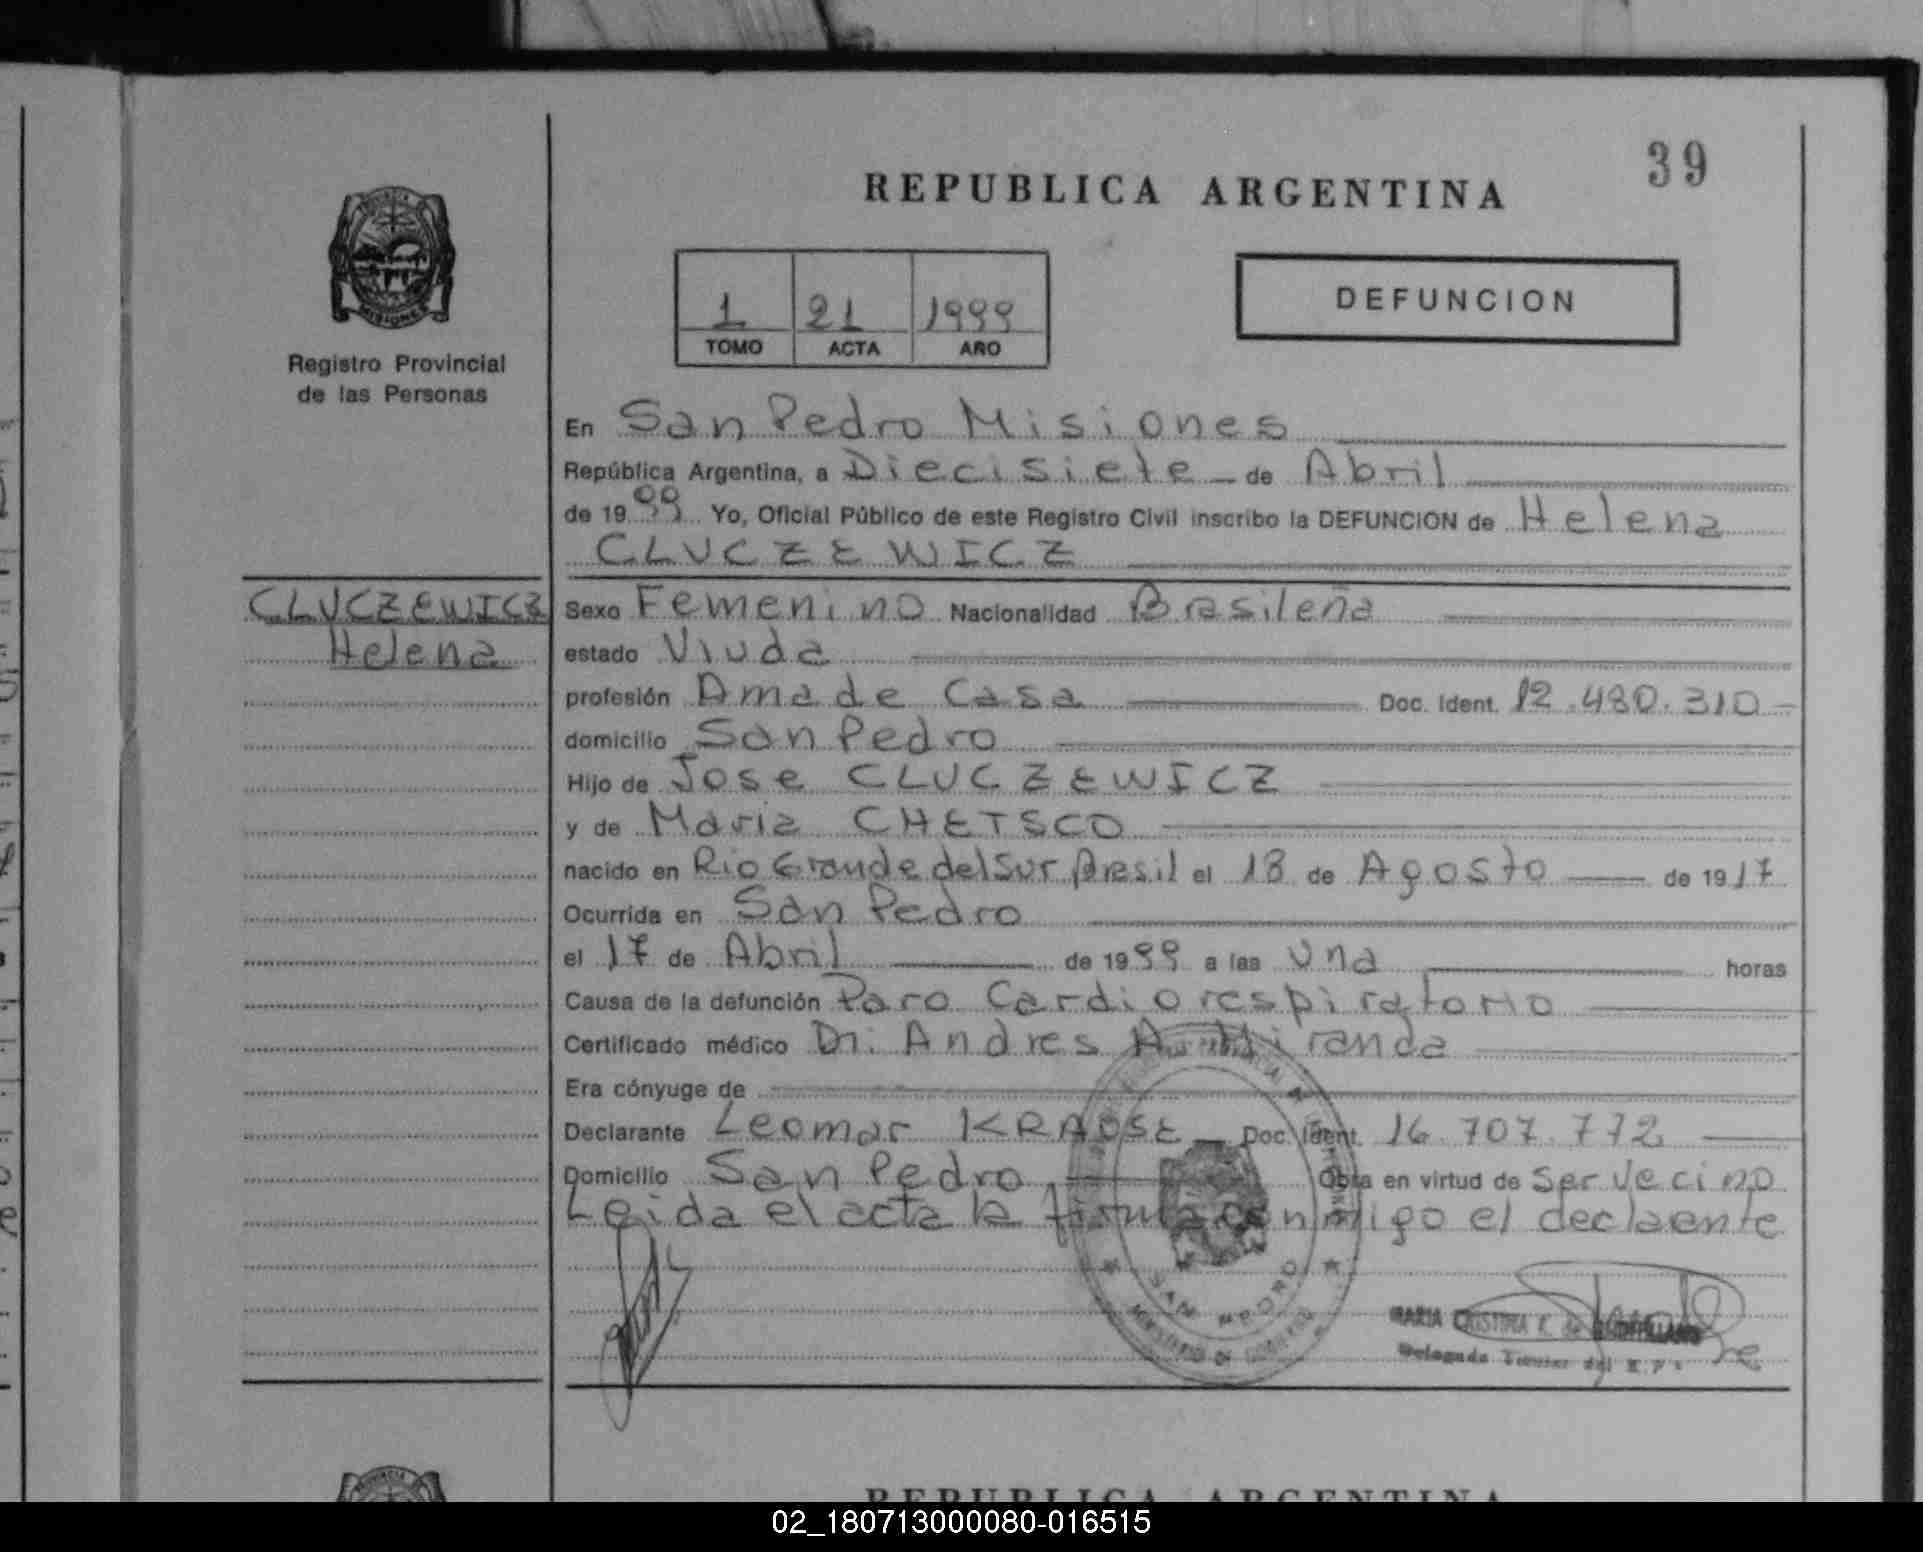 39
REPUBLICA ARGENTINA
MISIONES
Registro Provincial
de las Personas
1 21 1999
TOMO ACTA AÑO
DEFUNCION
En San Pedro Misiones
República Argentina, a Diecisiete de Abril
de 1999 Yo, Oficial Público de este Registro Civil inscribo la DEFUNCION de Helena
CLUCZEWICZ
CLUCZEWICZ
Helena
Sexo Femenino Nacionalidad Brasileña
estado Viuda
profesión Ama de Casa Doc. Ident. 12.480.310
domicilio San Pedro
Hijo de Jose CLUCZEWICZ
y de Maria CHETSCO
nacido en Rio Grande del Sur Brasil el 18 de Agosto de 1917
Ocurrida en San Pedro
el 17 de Abril de 1999 a las una horas
Causa de la defunción Paro Cardiorespiratorio
Certificado médico Dr. Andres A. Miranda
Era cónyuge de
Declarante Leomar KRAUSE Doc. Ident. 16.707.772
Domicilio San Pedro Obra en virtud de Ser Vecino
Leida el acta la firma conmigo el declaente
SAN PEDRO
MINISTERIO DE GOBIERNO
MARIA CRISTINA R. de
Delegada Titular del R.P.
REPUBLICA ARGENTINA
02_180713000080-016515